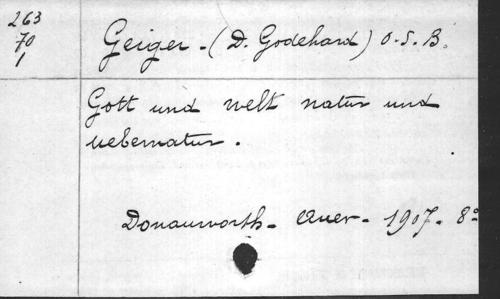 263
70
1
Geiger - (D. Godehard) O. S. B.
Gott und welt natur und
uebernatur.
Donauworth - Auer - 1907 - 8º